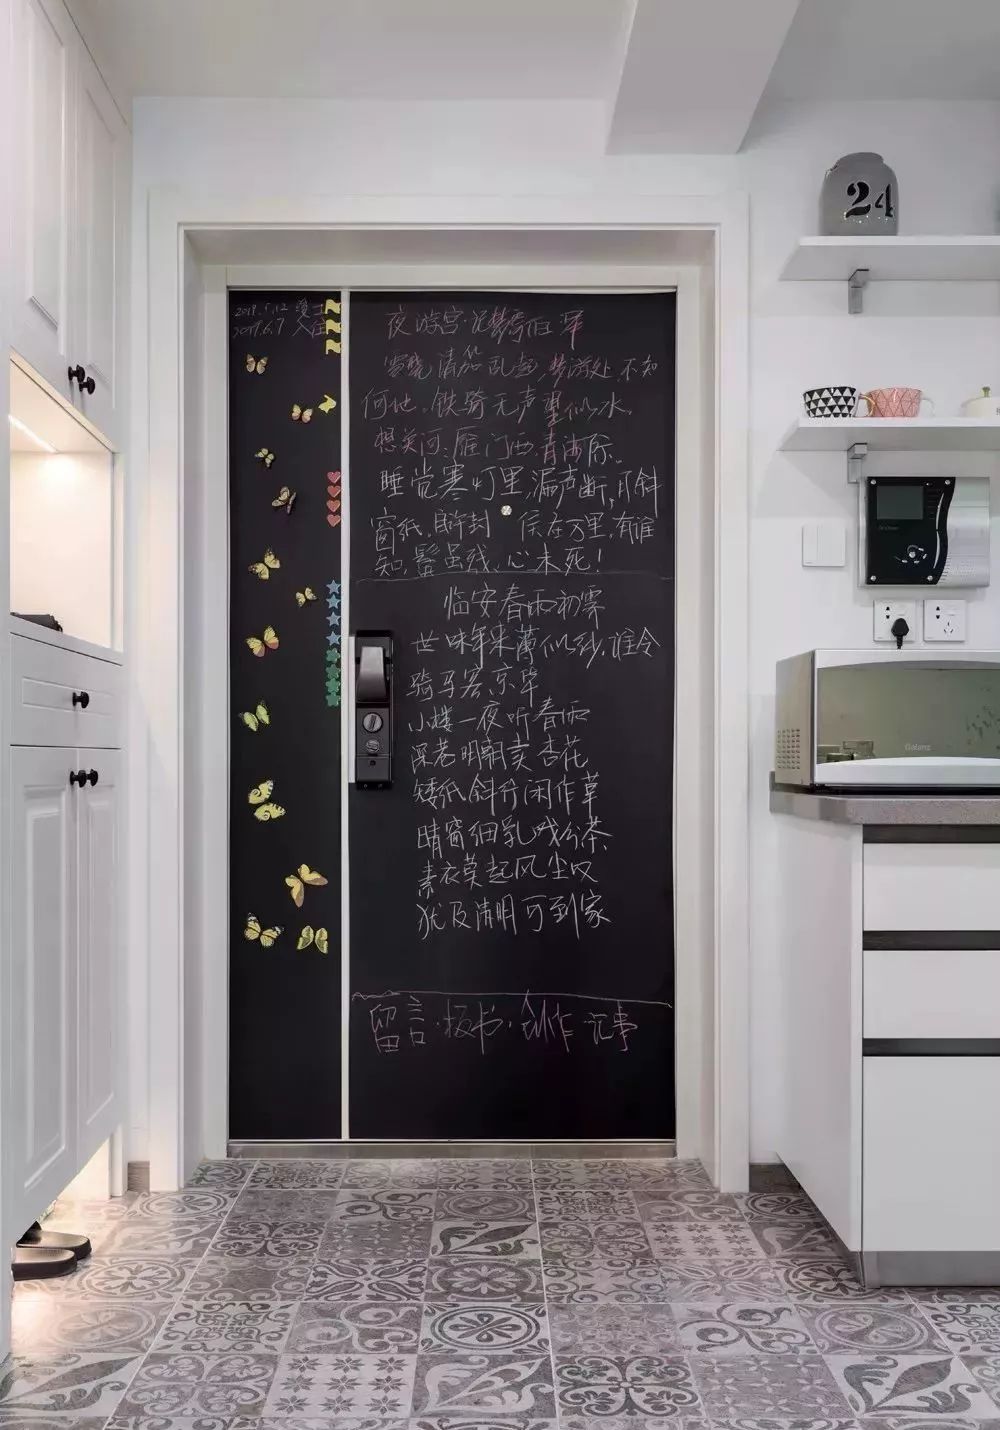 2018.5.12 爱士
2019.6.7 入住
夜游宫·记梦寄伯军
雪晓清笳乱起,梦游处,不知
何地。铁骑无声望似水。
想关河,雁门西,青海际。
睡觉寒灯里,漏声断,月斜
窗纸,自许封侯在万里,有谁
知,鬓虽残,心未死!
临安春雨初霁
世味年来薄似纱,谁令
骑马客京华
小楼一夜听春雨
深巷明朝卖杏花
矮纸斜行闲作草
晴窗细乳戏分茶
素衣莫起风尘叹
犹及清明可到家
留言·板书·创作 记事
24
Galanz